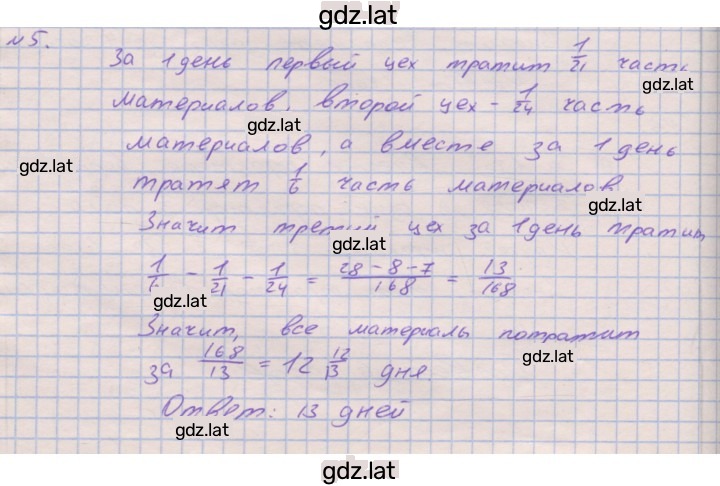 gdz.lat
№5.
За 1 день первый цех тратит 1/21 часть
gdz.lat
материалов, второй цех - 1/24 часть
gdz.lat
материалов, а вместе за 1 день
gdz.lat
тратят 1/6 часть материалов
gdz.lat
Значит третий цех за 1 день тратит
gdz.lat
1/6 - 1/21 - 1/24 = 28-8-7/168 = 13/168
gdz.lat
Значит, все материалы потратит
gdz.lat
за 168/13 = 12 12/13 дня
Ответ: 13 дней
gdz.lat
gdz.lat